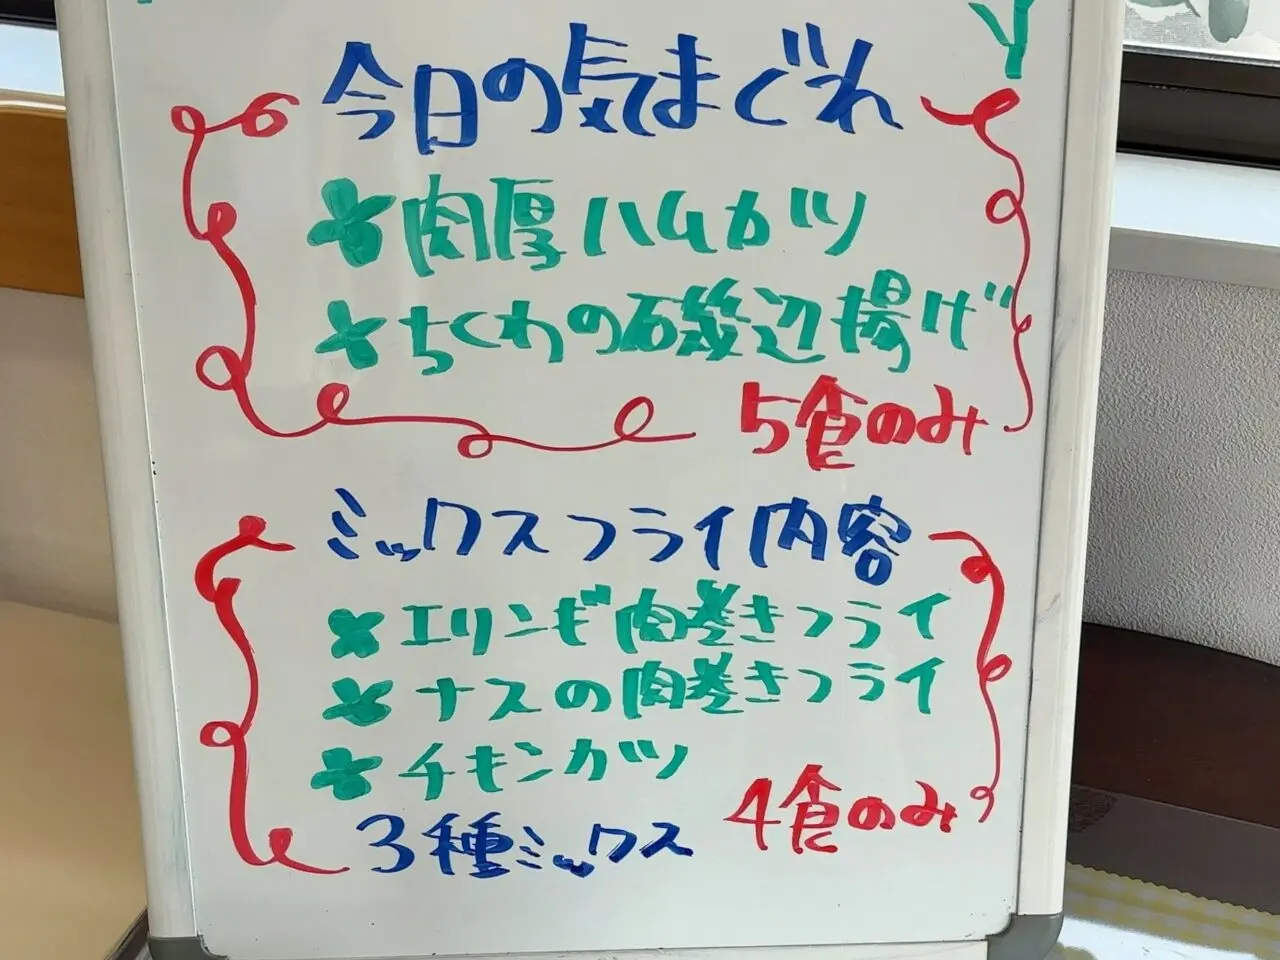 今日の気まぐれ
肉厚ハムカツ
ちくわの磯辺揚げ
5食のみ
ミックスフライ内容
エリンギ肉巻きフライ
ナスの肉巻きフライ
チキンカツ
4食のみ
3種ミックス